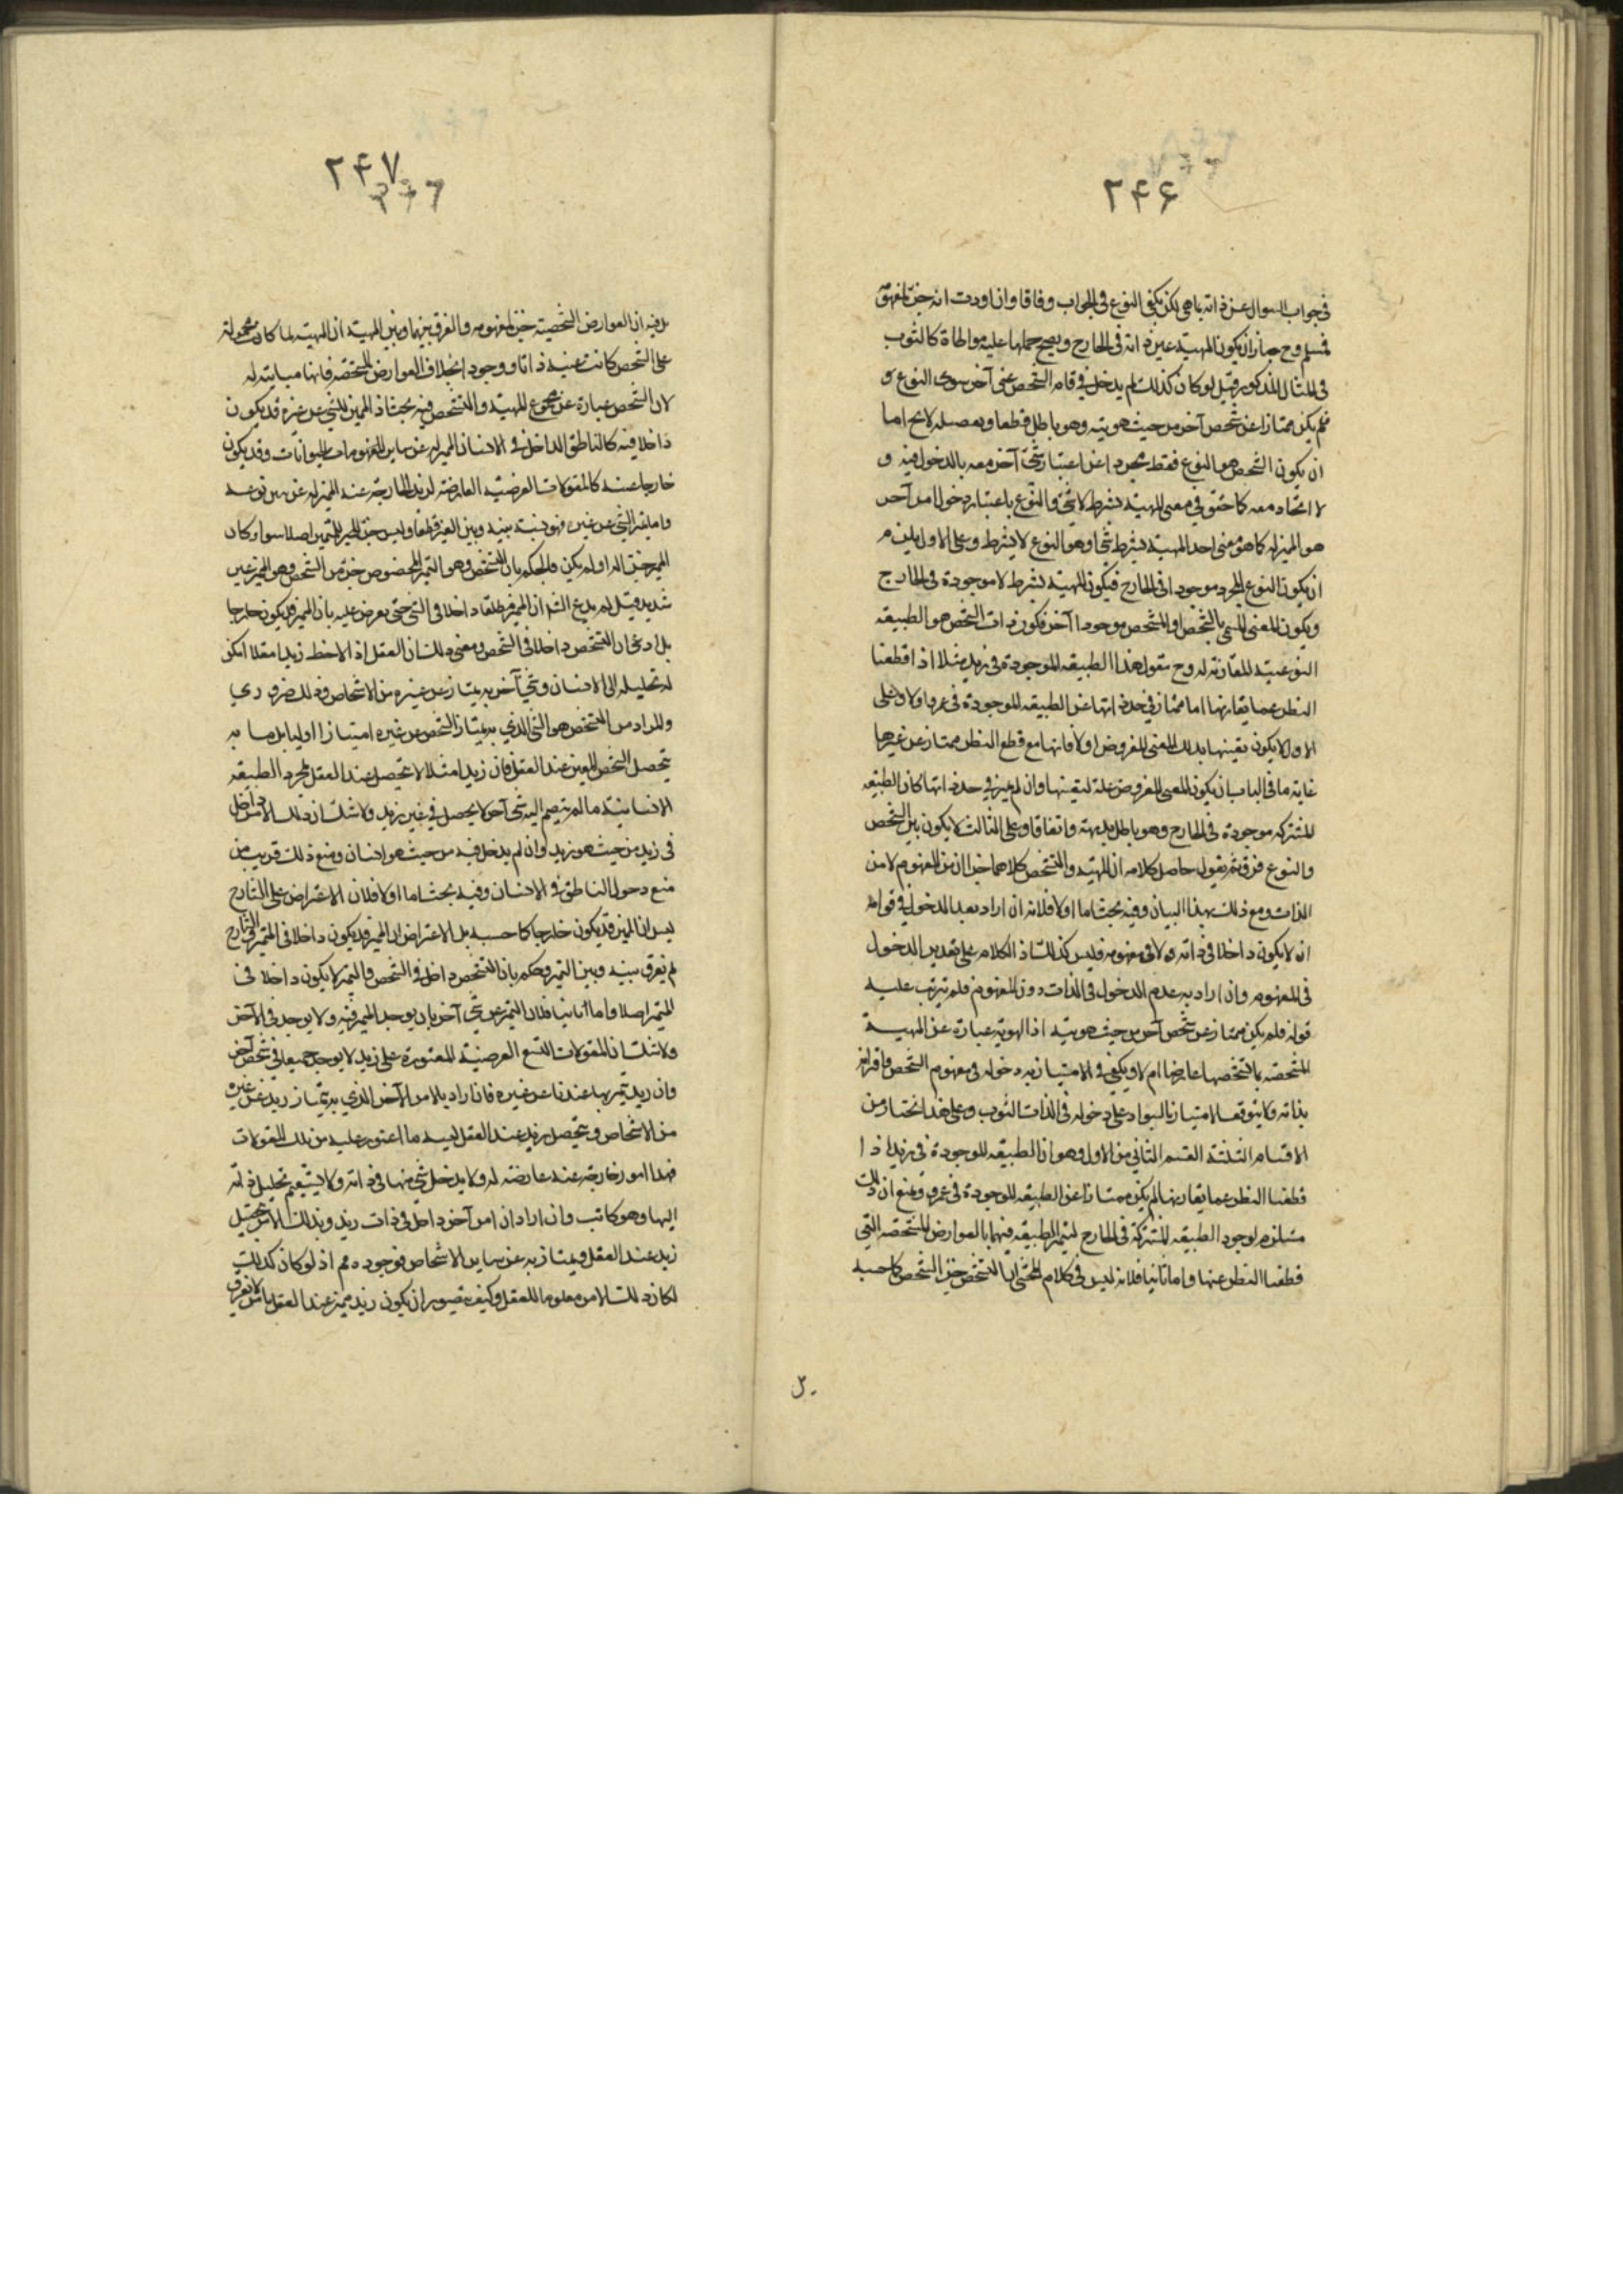 ۲۴۶
في جواب السوال عن ذاته بما هي لكن يكفي النوع في الجواب وفاقا وان اردت انه جزء لمفهومه
فمسلم وح جاز ان يكون المهية عين ذاته في الخارج ويصح حملها عليه مواطاة كالثوب
في المثال المذكور وقيل لو كان كذلك لم يدخل في قوام الشخص شيء آخر سوى النوع و
فلم يكن ممتازا عن شخص آخر من حيث هويته وهو باطل قطعا وتفصيله لا يخ اما
ان يكون الشخص هو النوع فقط مجردا عن اعتبار شيء آخر معه بالدخول فيه و
لا اتحاد معه كما حقق في معنى المهية بشرط لا شيء والنوع باعتبار دخول امر آخر
هو المميز له كما هو معنى اخذ المهية بشرط شيء او هو النوع لا بشرط وعلى الاول يلزم
ان يكون النوع المجرد موجودا في الخارج فيكون المهية بشرط لا موجودة في الخارج
ويكون المعنى المسمى بالتشخص او المشخص موجودا آخر فكون ذات الشخص هو الطبيعة
النوعية المقارنة له وح نقول هذا الطبيعة الموجودة في زيد مثلا اذا قطعنا
النظر عما يقارنها اما ممتاز في حد ذاتها عن الطبيعة الموجودة في عمرو اولا وعلى
الاول لا يكون تعينها بذلك المعنى المفروض اولا فانها مع قطع النظر ممتاز عن غيرها
غاية ما في الباب ان يكون المعنى المفروض علة لتعينها وان لم يميز في حد ذاتها كان الطبيعة
المشتركة موجودة في الخارج وهو باطل بديهة واتفاقا وعلى الثالث لا يكون بين الشخص
والنوع فرق ثم يقول حاصل كلامه ان المهية والتشخص كلاهما جزان من المفهوم لا من
الذات ومع ذلك بهذا البيان وفيه بحث اما اولا فلانه ان اراد بعدم الدخول في قوامه
انه لا يكون داخلا في ذاته ولا في مفهومه فليس كذلك اذ الكلام على تقدير الدخول
في المفهوم وان اراد به عدم الدخول في الذات دون المفهوم فلم يترتب عليه
قوله فلم يكن ممتازا عن شخص آخر من حيث هويته اذ الهوية عبارة عن المهية
المشخصة بما تشخصها عارضا ام لا ويكفي في الامتياز به دخوله في مفهوم الشخص واقترانه
بذاته ولا يتوقف الامتياز بالسواد على دخوله في الذات الثوب وعلى هذا نختار من
الاقسام الثلثة القسم الثاني من الاول وهو ان الطبيعة الموجودة في زيد اذا
قطعنا النظر عما يقارنها لم يكن ممتازا عن الطبيعة الموجودة في عمرو ونمنع ان ذلك
مستلزم لوجود الطبيعة المشتركة في الخارج لتميز الطبيعة فيهما بالعوارض المشخصة التي
قطعنا النظر عنها واما ثانيا فلانه ليس في كلام المحشي ان التشخص جزء الشخص كما حسبه
بل
۲۴۷
بل فيه ان العوارض الشخصية جزء لمفهومه والفرق بينهما وبين المهية ان المهية لما كانت محمولة
على الشخص كانت عينه ذاتا ووجودا بخلاف العوارض المشخصة فانها مباينة له
لان الشخص عبارة عن مجموع المهية والتشخص فيه بحث اذ المميز للشيء عن غيره قد يكون
داخلا فيه كالناطق الداخل في الانسان المميز له عن ساير المفهومات الحيوانات وقد يكون
خارجا عنه كالمقولات العرضية العارضة لزيد الخارجة عنه المميز له عن بني نوعه
واما تميز الشيء عن غيره فهو نسبة بينه وبين الغير قطعا وليس جزء المميز المتميز اصلا سوا كان
المميز جزء له او لم يكن فالحكم بان التشخص وهو التميز المخصوص جزء من الشخص وهو المميز غير
شديد قيل لم يدع الش ان المميز مطلقا داخلا في الشيء حتى يعرض عليه بان المميز قد يكون خارجا
بل ادعى ان التشخص داخلا في الشخص ومعنى ذلك ان العقل اذ الاحظ زيدا مثلا امكن
له تحليله الى الانسان وشيء آخر به يمتاز عن غيره من الاشخاص وذلك ضروري
والمراد من التشخص هو الشيء الذي به يمتاز الشخص عن غيره امتيازا اوليا بل ما به
يتحصل الشخص المعين عند العقل فان زيدا مثلا لا يتحصل عند العقل بمجرد الطبيعة
الانسانية ما لم ينضم اليه شيء آخر لا يحصل في غير زيد ولا شك ان ذلك الامر داخل
في زيد من حيث هو زيد وان لم يدخل فيه من حيث هو انسان ومنع ذلك قريب من
منع دخول الناطق في الانسان وفيه بحث اما اولا فلان الاعتراض على الشارح
ليس ان المميز قد يكون خارجا كما حسبه بل الاعتراض ان المميز قد يكون داخلا في المتميز والشارح
لم يفرق بينه وبين التميز وحكم بان التشخص داخل في الشخص والتميز لا يكون داخلا في
المتميز اصلا واما ثانيا فلان التميز عن شيء آخر بان يوجد المميز فيه ولا يوجد في الآخر
ولا شك ان المقولات التسع العرضية المعتورة على زيد لا يوجد جميعا في شخص آخر
وان زيد تميز بها عندنا عن غيره فان اراد بالامر الآخر الذي به يمتاز زيد عن غيره
من الاشخاص ويتحصل زيد عند العقل لسيه ما اعتور عليه من تلك المقولات
فهذا امور خارجة عنه عارضة له ولا يدخل شيء منها في ذاته ولا يستقيم تحليل ذاته
اليها وهو كاتب وان اراد ان امر آخر داخل في ذات زيد وبذلك الامر تحصيل
زيد عند العقل ويمتاز به عن ساير الاشخاص فوجوده مم اذ لو كان كذلك
لكان ذلك الامر معلوما للعقل وكيف يتصور ان يكون زيد مميز عند العقل بامر لا يعرف